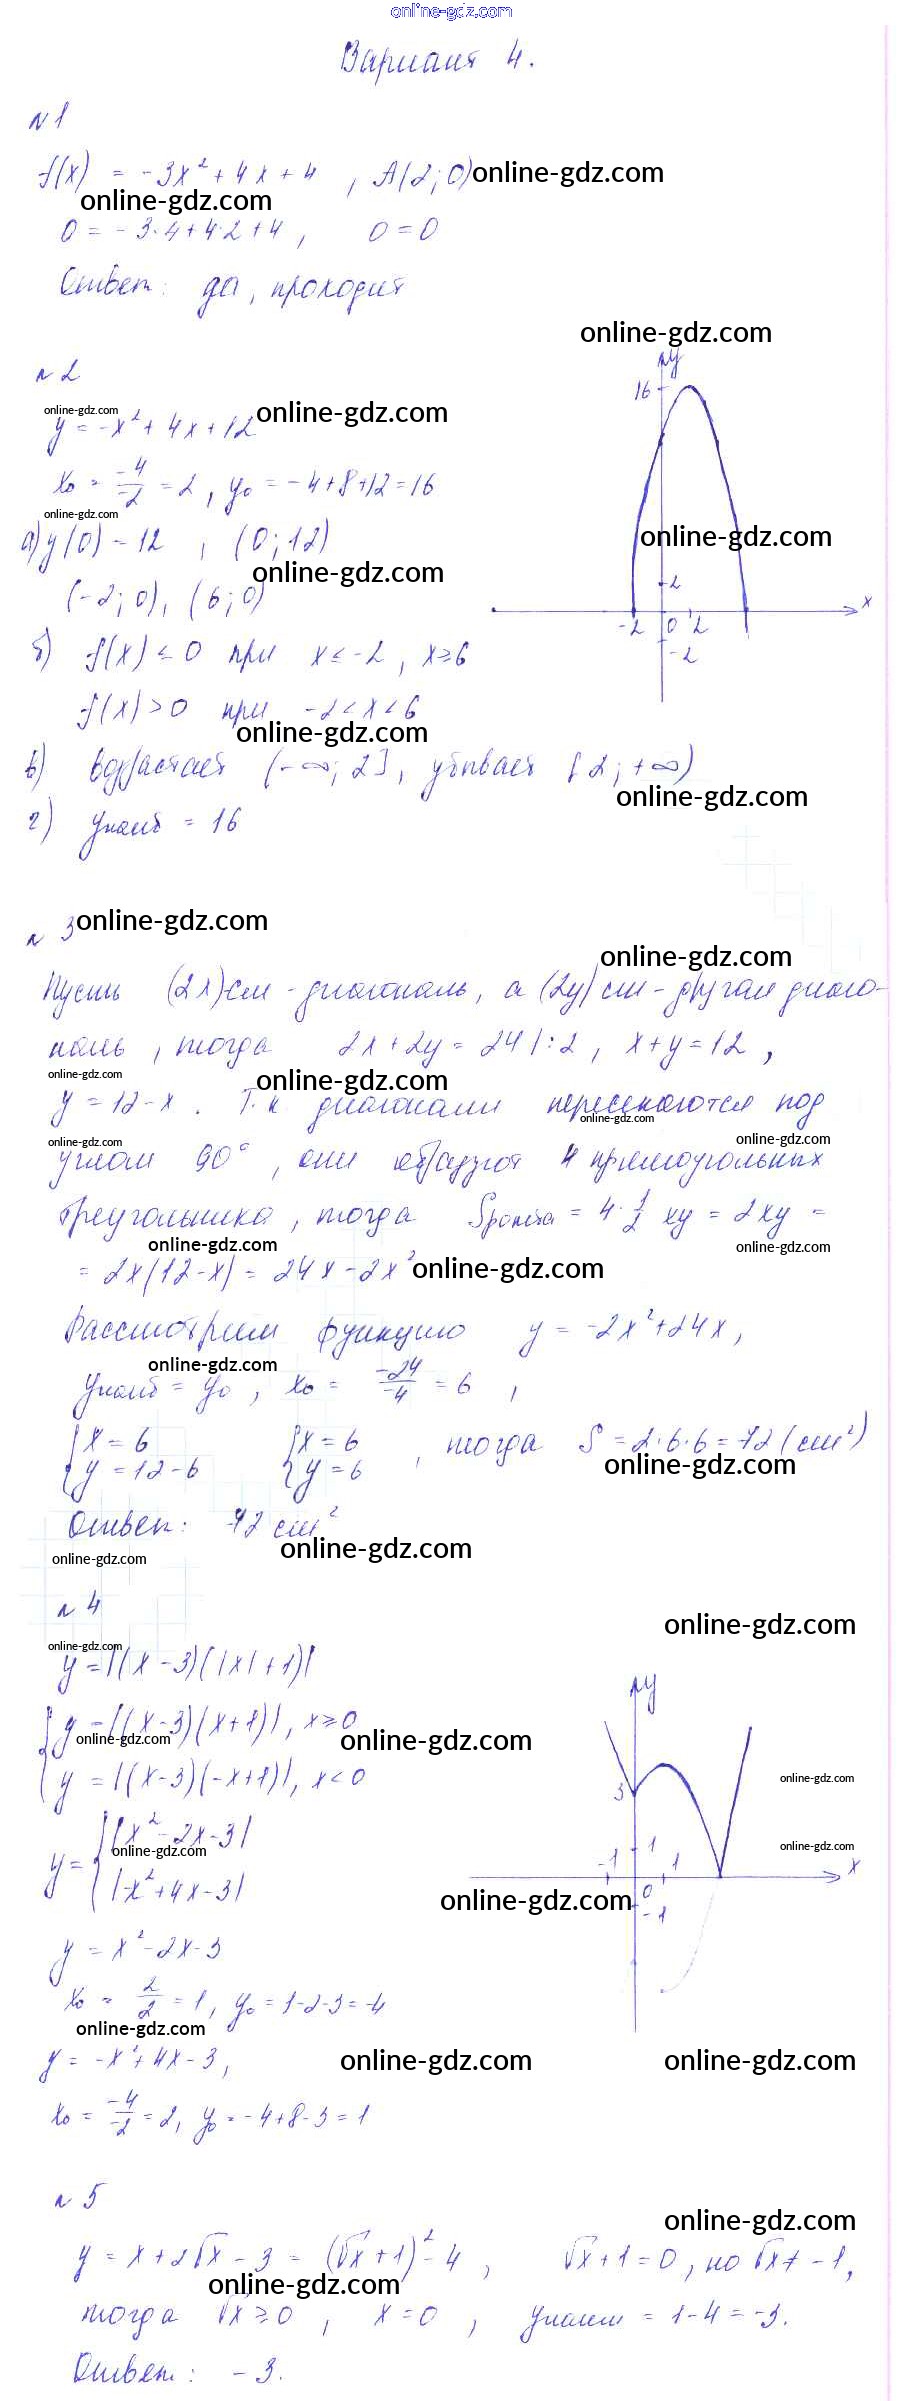 online-gdz.com
Вариант 4.
№ 1
f(x) = -3x² + 4x + 4 , A(2; 0) online-gdz.com
online-gdz.com
0 = -3·4 + 4·2 + 4 , 0 = 0
Ответ: да, проходит
online-gdz.com
№ 2
y
16
online-gdz.com online-gdz.com
y = -x² + 4x + 12
x₀ = -4/-2 = 2 , y₀ = -4+8+12 = 16
online-gdz.com
а) y(0) = 12 , (0; 12)
online-gdz.com
online-gdz.com
(-2; 0), (6; 0)
2
x
-2 0 2
-2
б) f(x) ≤ 0 при x ≤ -2 , x ≥ 6
f(x) > 0 при -2 < x < 6
online-gdz.com
в) возрастает (-∞; 2] , убывает [2; +∞)
online-gdz.com
г) yнаиб = 16
№ 3 online-gdz.com
online-gdz.com
Пусть (2x) см - диагональ, а (2y) см - другая диаго-
наль , тогда 2x + 2y = 24 |:2 , x + y = 12 ,
online-gdz.com online-gdz.com
y = 12 - x . Т.к диагонали пересекаются под
online-gdz.com
online-gdz.com online-gdz.com
углом 90° , они образуют 4 прямоугольных
треугольника , тогда Sромба = 4 · 1/2 xy = 2xy =
online-gdz.com online-gdz.com
= 2x(12-x) = 24x - 2x² online-gdz.com
Рассмотрим функцию y = -2x² + 24x ,
online-gdz.com
yнаиб = y₀ , x₀ = -24/-4 = 6 ,
{x = 6 {x = 6 , тогда S = 2·6·6 = 72 (см²)
{y = 12-6 {y = 6
online-gdz.com
Ответ: 72 см²
online-gdz.com
online-gdz.com
№ 4
online-gdz.com
online-gdz.com
y = |(x-3)(|x|+1)|
y
{y = |(x-3)(x+1)|, x ≥ 0
online-gdz.com online-gdz.com
{y = |(x-3)(-x+1)|, x < 0
online-gdz.com
3
y = {|x² - 2x - 3|
online-gdz.com
online-gdz.com
{|-x² + 4x - 3|
1
-1 1 x
0
-1
online-gdz.com
y = x² - 2x - 3
x₀ = 2/2 = 1 , y₀ = 1-2-3 = -4
online-gdz.com
y = -x² + 4x - 3 ,
online-gdz.com online-gdz.com
x₀ = -4/-2 = 2, y₀ = -4+8-3 = 1
№ 5
online-gdz.com
y = x + 2√x - 3 = (√x + 1)² - 4 , √x + 1 = 0 , но √x ≠ -1 ,
online-gdz.com
тогда √x ≥ 0 , x = 0 , yнаим = 1-4 = -3.
Ответ: -3.